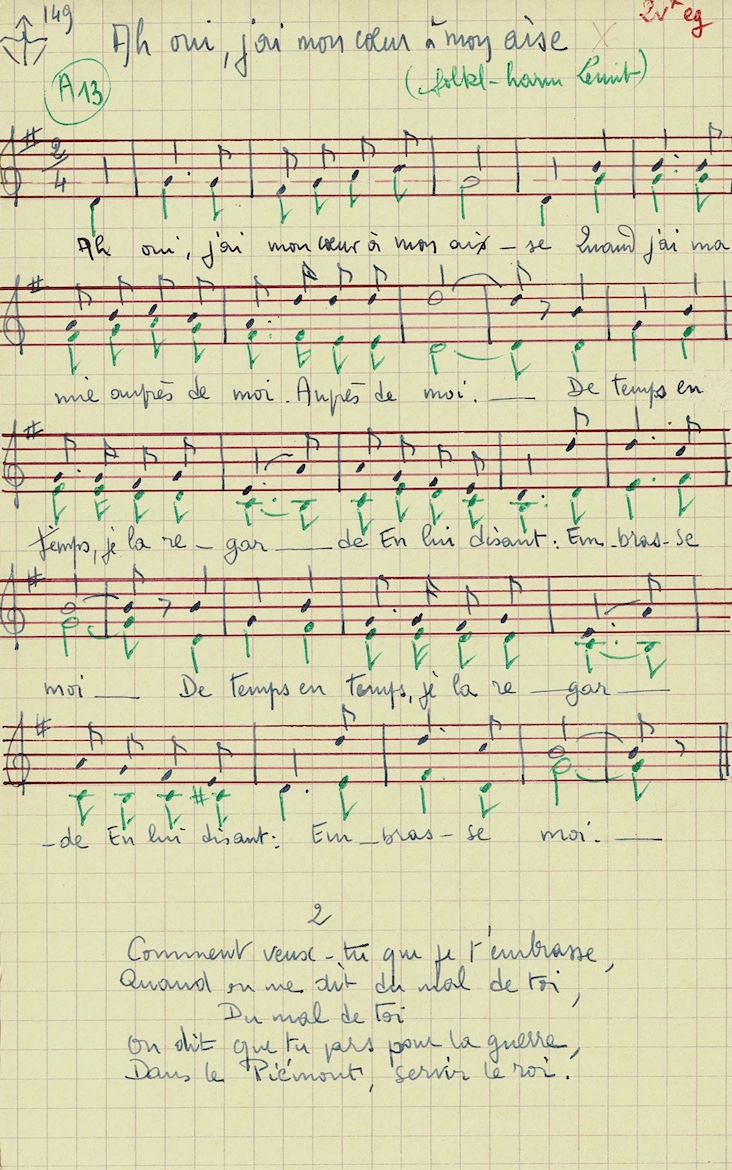 149
2v* eg
Ah oui, j'ai mon cœur à mon aise
A13
(folkl-harm Lemit)
2
4
Ah oui, j'ai mon cœur à mon aix - se Quand j'ai ma
mie auprès de moi. Auprès de moi. ___ De temps en
temps, je la re - gar ___ de En lui disant : Em-bras-se
moi ___ De temps en temps, je la re - gar ___
-de En lui disant : Em - bras - se moi. ___
2
Comment veux-tu que je t'embrasse,
Quand on me dit du mal de toi,
Du mal de toi
On dit que tu pars pour la guerre,
Dans le Piémont, servir le roi.